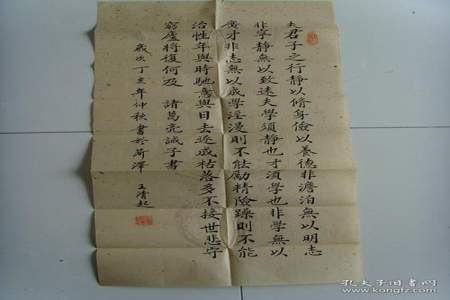 夫君子之行静以脩身儉以養德非澹泊無以明志
非寧静無以致遠夫學須静也才須學也非學無以
廣才非志無以成學淫漫則不能勵精險躁則不能
治性年與時馳意與日去遂成枯落多不接世悲守
窮廬將復何及 諸葛亮誡子書
歲次丁亥年仲秋書於菏澤 王清起
孔夫子旧书网
www.kongfz.com